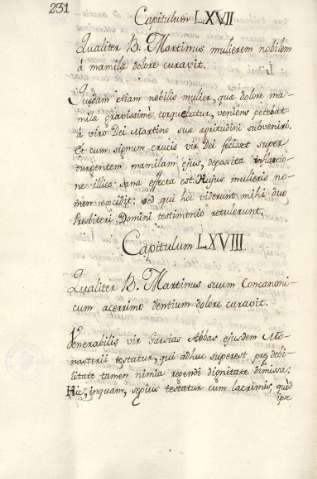 231
Capitulum LXVII
Qualiter B. Martinus mulierem nobilem
á mamilę dolore curavit.
Quedam etiam nobilis mulier, quę dolore ma-
milę gravissime torquebatur, veniens petebat
á viro Dei Martino suę egritudini subveniri.
Et cum signum crucis vir Dei fecisset super
turgentem mamilam ejus, deposita inflatio-
ne illico sana effecta est. Hujus mulieris no-
men reticetur: sed qui hoc viderunt mihi duo
Presbiteri Domini testimonio retulerunt.
Capitulum LXVIII.
Qualiter B. Martinus suum concanoni-
cum acerrimo dentium dolore curavit.
Venerabilis vir Garsias Abbas ejusdem Mo-
nasterii testatur, qui adhuc superest prę debi-
litate tamen nimia regendi dignitate dimissa:
Hic, inquam, sępius testatur cum lacrimis, quod
ipse